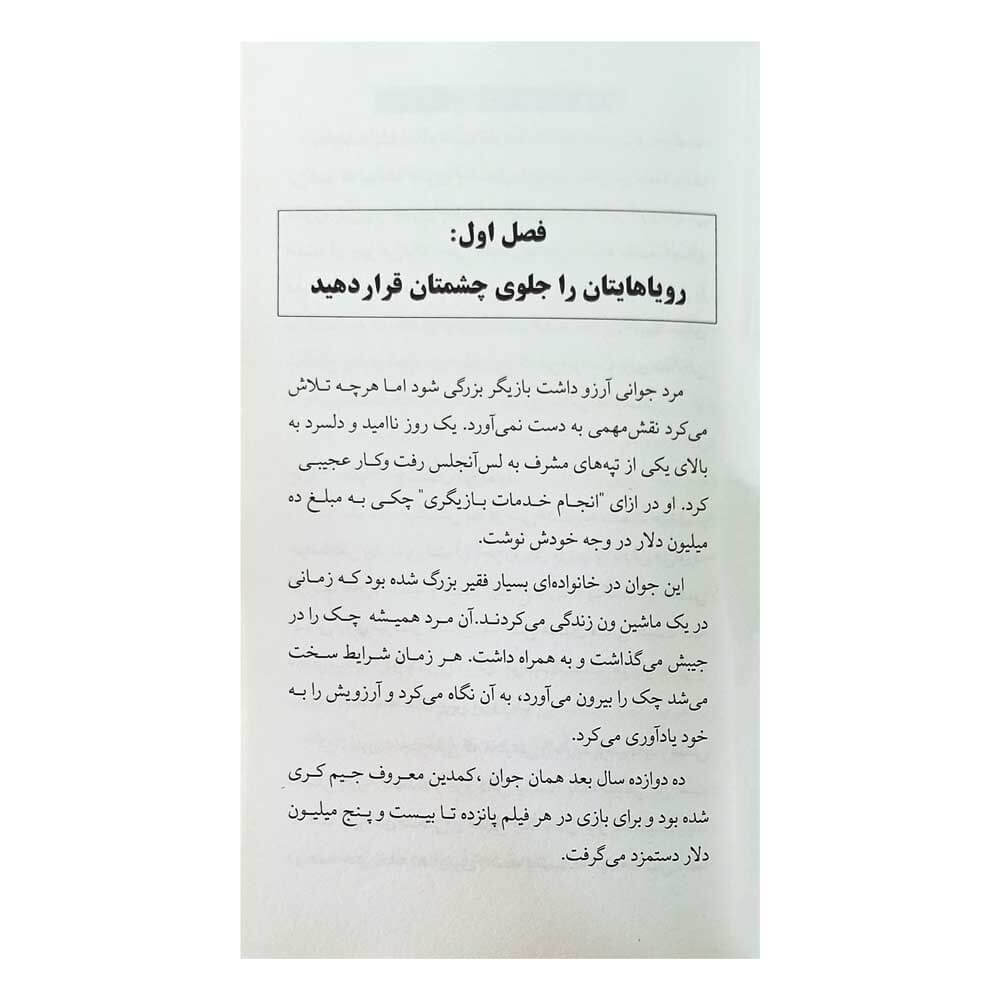 فصل اول:
رویاهایتان را جلوی چشمتان قرار دهید
مرد جوانی آرزو داشت بازیگر بزرگی شود اما هرچه تلاش
می‌کرد نقش‌مهمی به دست نمی‌آورد. یک روز ناامید و دلسرد به
بالای یکی از تپه‌های مشرف به لس‌آنجلس رفت وکار عجیبی
کرد. او در ازای "انجام خدمات بازیگری" چکی به مبلغ ده
میلیون دلار در وجه خودش نوشت.
این جوان در خانواده‌ای بسیار فقیر بزرگ شده بود که زمانی
در یک ماشین ون زندگی می‌کردند.آن مرد همیشه چک را در
جیبش می‌گذاشت و به همراه داشت. هر زمان شرایط سخت
می‌شد چک را بیرون می‌آورد، به آن نگاه می‌کرد و آرزویش را به
خود یادآوری می‌کرد.
ده دوازده سال بعد همان جوان ،کمدین معروف جیم کری
شده بود و برای بازی در هر فیلم پانزده تا بیست و پنج میلیون
دلار دستمزد می‌گرفت.